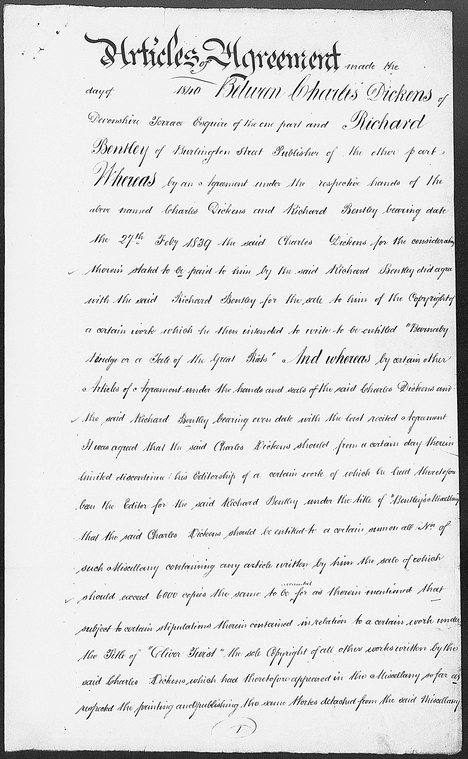 Articles of Agreement made the
day of 1840 Between Charles Dickens of
Devonshire Terrace Esquire of the one part and Richard
Bentley of Burlington Street Publisher of the other part
Whereas by an Agreement under the respective hands of the
above named Charles Dickens and Richard Bentley bearing date
the 27th Feby 1839 the said Charles Dickens for the consideration
therein stated to be paid to him by the said Richard Bentley did agree
with the said Richard Bentley for the sale to him of the Copyright of
a certain work which he then intended to write to be entitled "Barnaby
Rudge or a Tale of the Great Riots" And whereas by certain other
Articles of Agreement under the hands and seals of the said Charles Dickens and
the said Richard Bentley bearing even date with the last recited Agreement
It was agreed that the said Charles Dickens should from a certain day therein
limited discontinue his Editorship of a certain work of which he had theretofore
been the Editor for the said Richard Bentley under the title of "Bentley's Miscellany
that the said Charles Dickens should be entitled to a certain sum on all Nos of
such Miscellany containing any article written by him the sale of which
should exceed 6000 copies the same to be for as therein mentioned that
subject to certain stipulations therein contained in relation to a certain work under
the Title of "Oliver Twist" the sole Copyright of all other works written by the
said Charles Dickens which had theretofore appeared in the Miscellany so far as
respected the printing and publishing the same Works detached from the said Miscellany
1